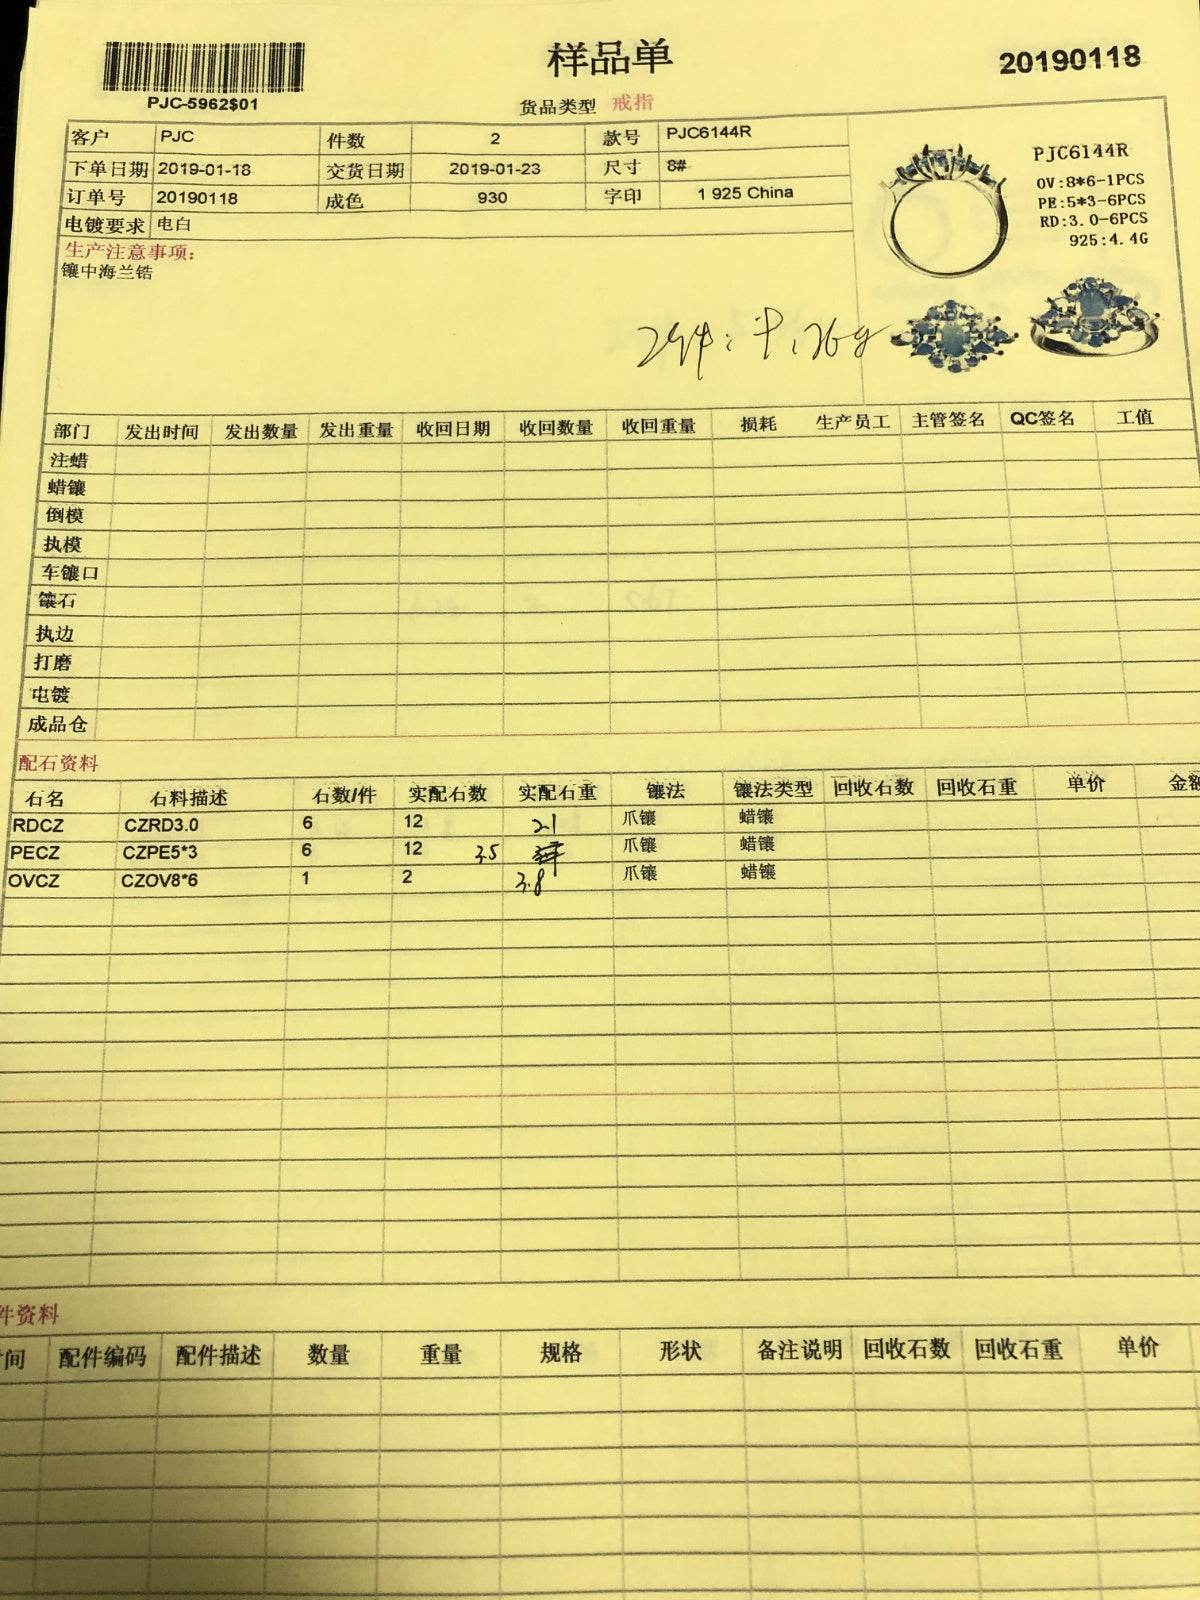 样品单
20190118
PJC-5962$01
货品类型 戒指
客户 PJC 件数 2 款号 PJC6144R
下单日期 2019-01-18 交货日期 2019-01-23 尺寸 8#
订单号 20190118 成色 930 字印 1 925 China
电镀要求 电白
生产注意事项:
镶中海兰锆
PJC6144R
OV:8*6-1PCS
PE:5*3-6PCS
RD:3.0-6PCS
925:4.4G
部门 发出时间 发出数量 发出重量 收回日期 收回数量 收回重量 损耗 生产员工 主管签名 QC签名 工值
注蜡
蜡镶
倒模
执模
车镶口
镶石
执边
打磨
电镀
成品仓
配石资料
石名 石料描述 石数/件 实配石数 实配石重 镶法 镶法类型 回收石数 回收石重 单价 金额
RDCZ CZRD3.0 6 12 21 爪镶 蜡镶
PECZ CZPE5*3 6 12 3.5 爪镶 蜡镶
OVCZ CZOV8*6 1 2 3.8 爪镶 蜡镶
件资料
间 配件编码 配件描述 数量 重量 规格 形状 备注说明 回收石数 回收石重 单价